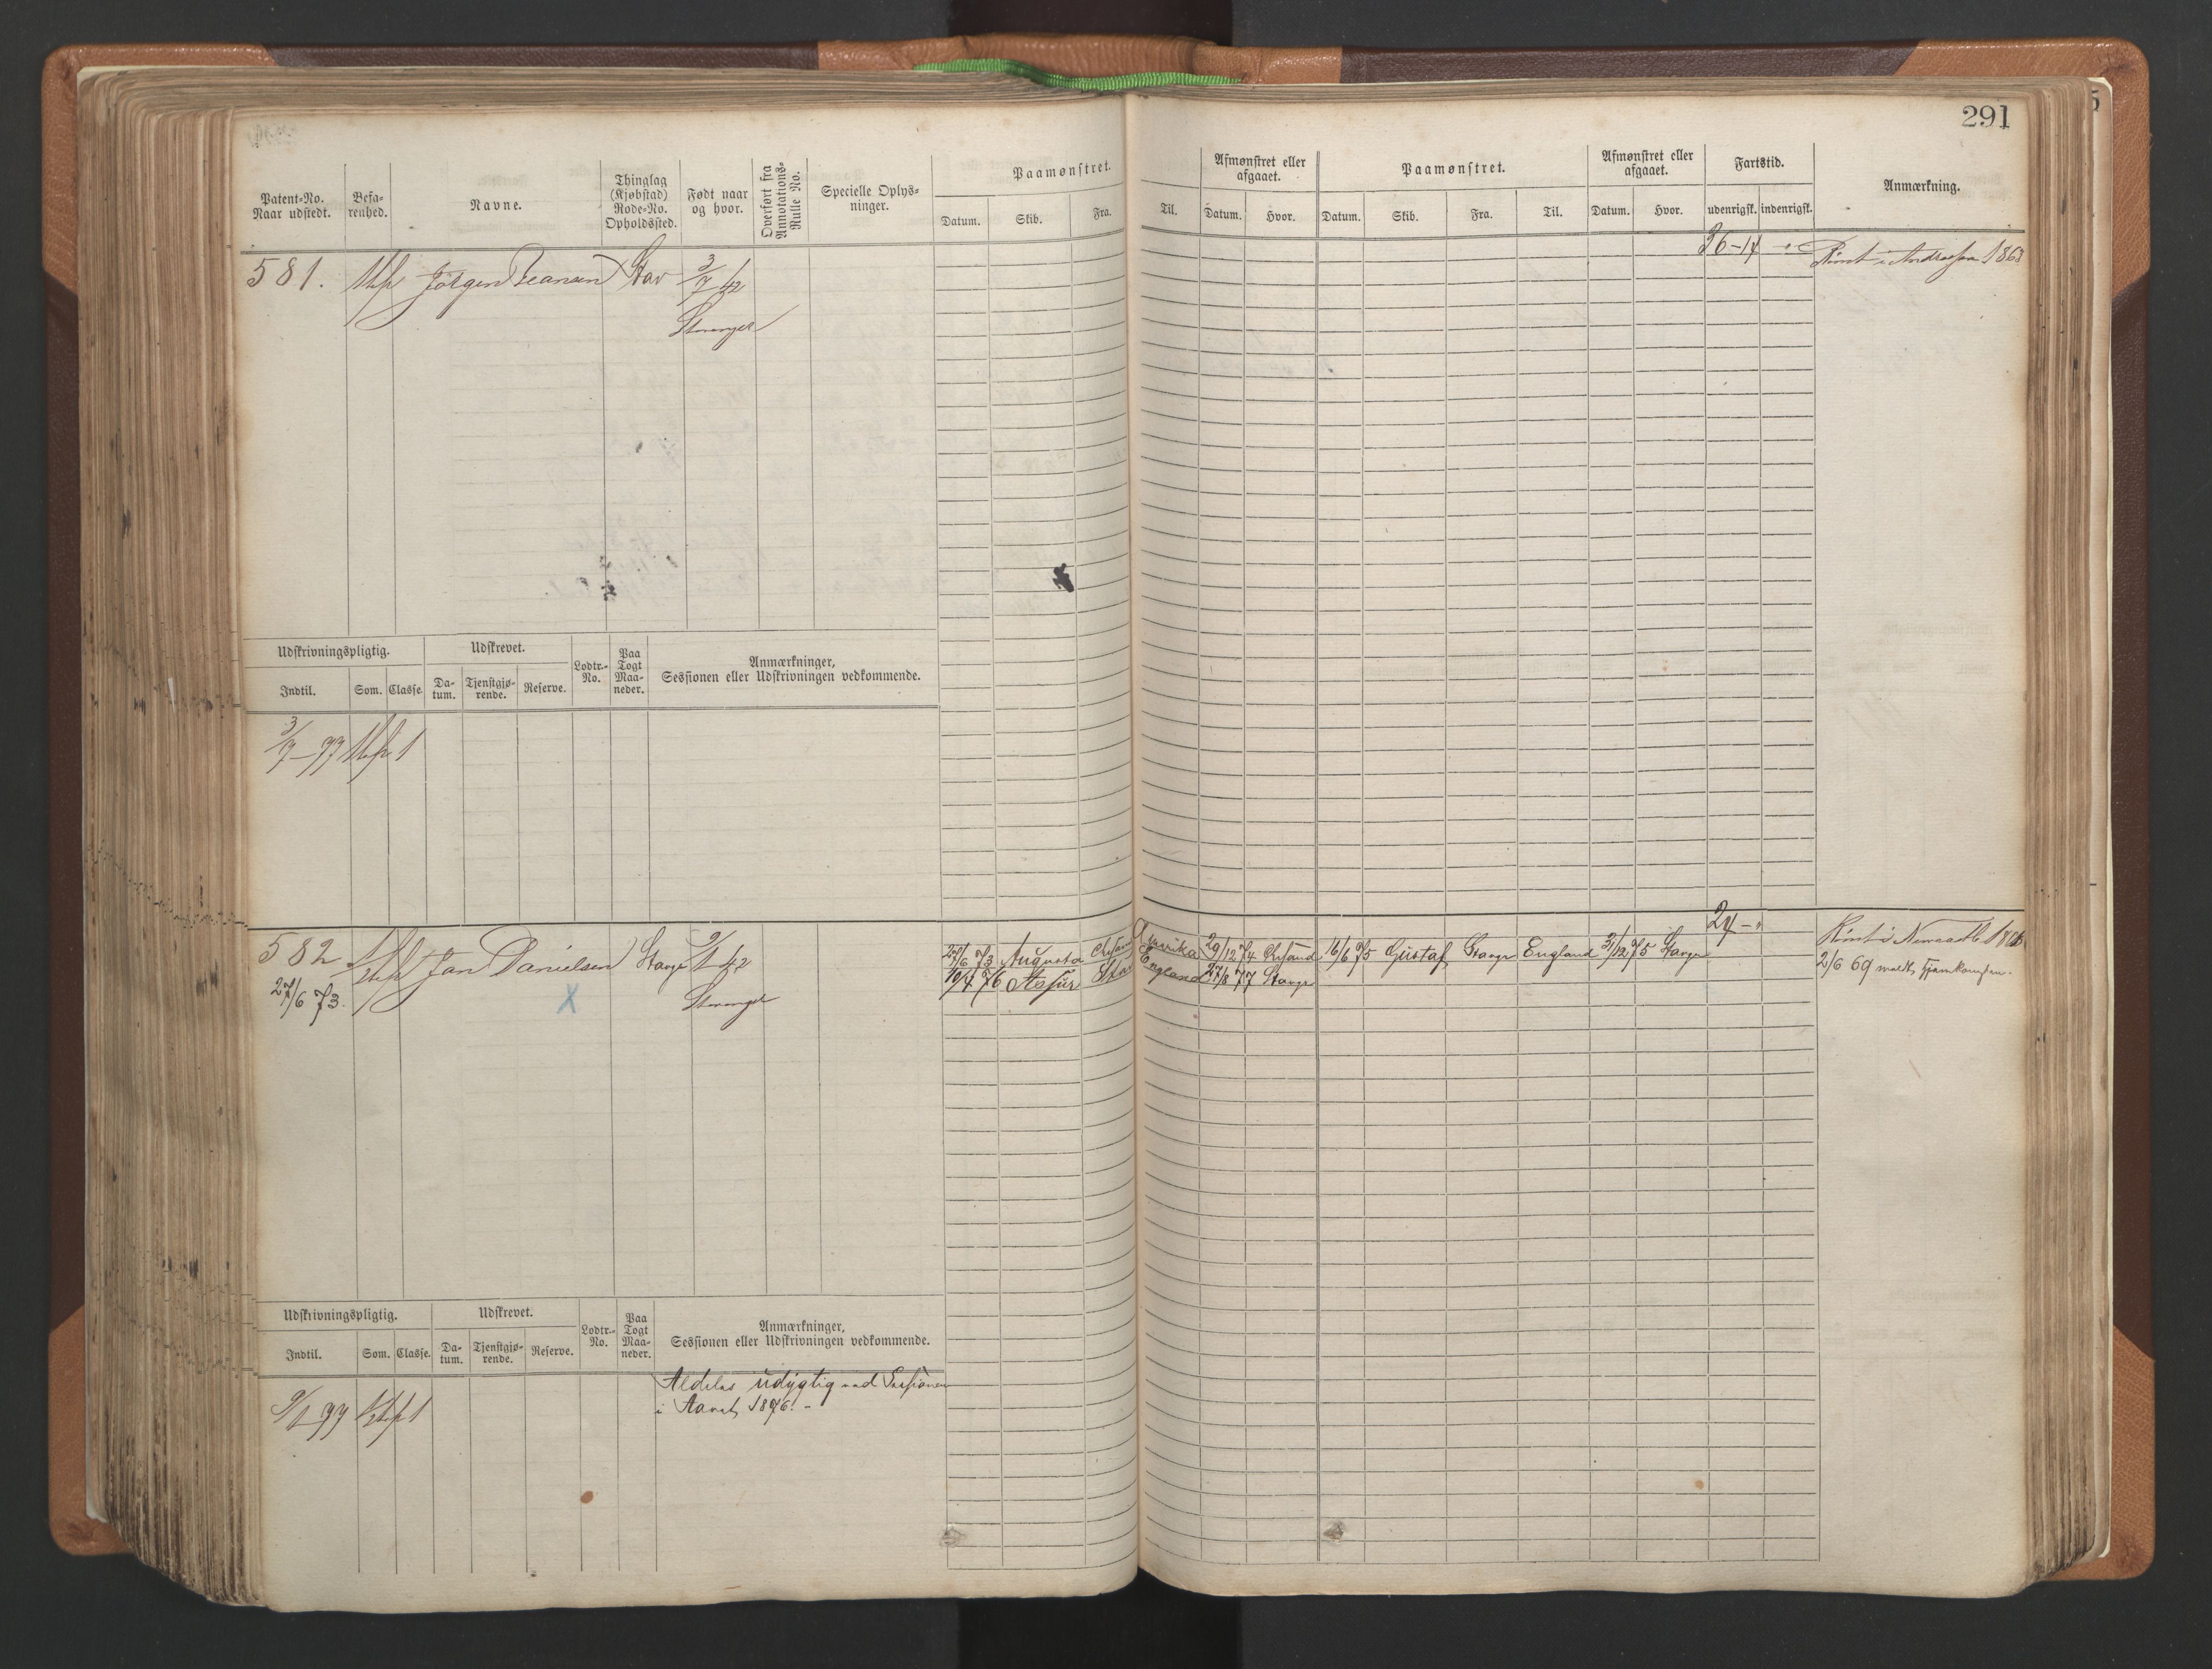 291
Patent-No. Naar udstedt.
Befa-renhed.
Navne.
Thinglag (Kjøbstad) Rode-No. Opholdssted.
Født naar og hvor.
Overført fra Annotations-Rulle No.
Specielle Oplys-ninger.
Paamønstret.
Datum. Skib. Fra. Til.
Afmønstret eller afgaaet.
Datum. Hvor.
Paamønstret.
Datum. Skib. Fra. Til.
Afmønstret eller afgaaet.
Datum. Hvor.
Fartstid.
udenrigsk. indenrigsk.
Anmærkning.
581. Jørgen Stav 3/7 42
Stavanger
36-14 Rømt i 1863
Udskrivningspligtig. Udskrevet. Lodtr.-No. Paa Togt Maa-neder. Anmærkninger, Sessionen eller Udskrivningen vedkommende.
Indtil. Som. Classe. Da-tum. Tjenstgjø-rende. Reserve.
3/7 77 1
582 Jan Danielsen Stavgr 9/1 42
27/6 73.
Stavanger
X
27/6 73 Augusta Chrsand Amerika 29/12 74 Chrsand 16/6 75 Gustaf Stavgr England 31/12 75 Stavgr 24-"
19/4 76 Assur Stav England 27/8 77 Stavgr
Rømt i Newcastle
2/6 69 meldt Hjemkomsten.
Udskrivningspligtig. Udskrevet. Lodtr.-No. Paa Togt Maa-neder. Anmærkninger, Sessionen eller Udskrivningen vedkommende.
Indtil. Som. Classe. Da-tum. Tjenstgjø-rende. Reserve.
9/1 77 1
Aldeles udygtig ved Sessionen
i Aaret 1876. -